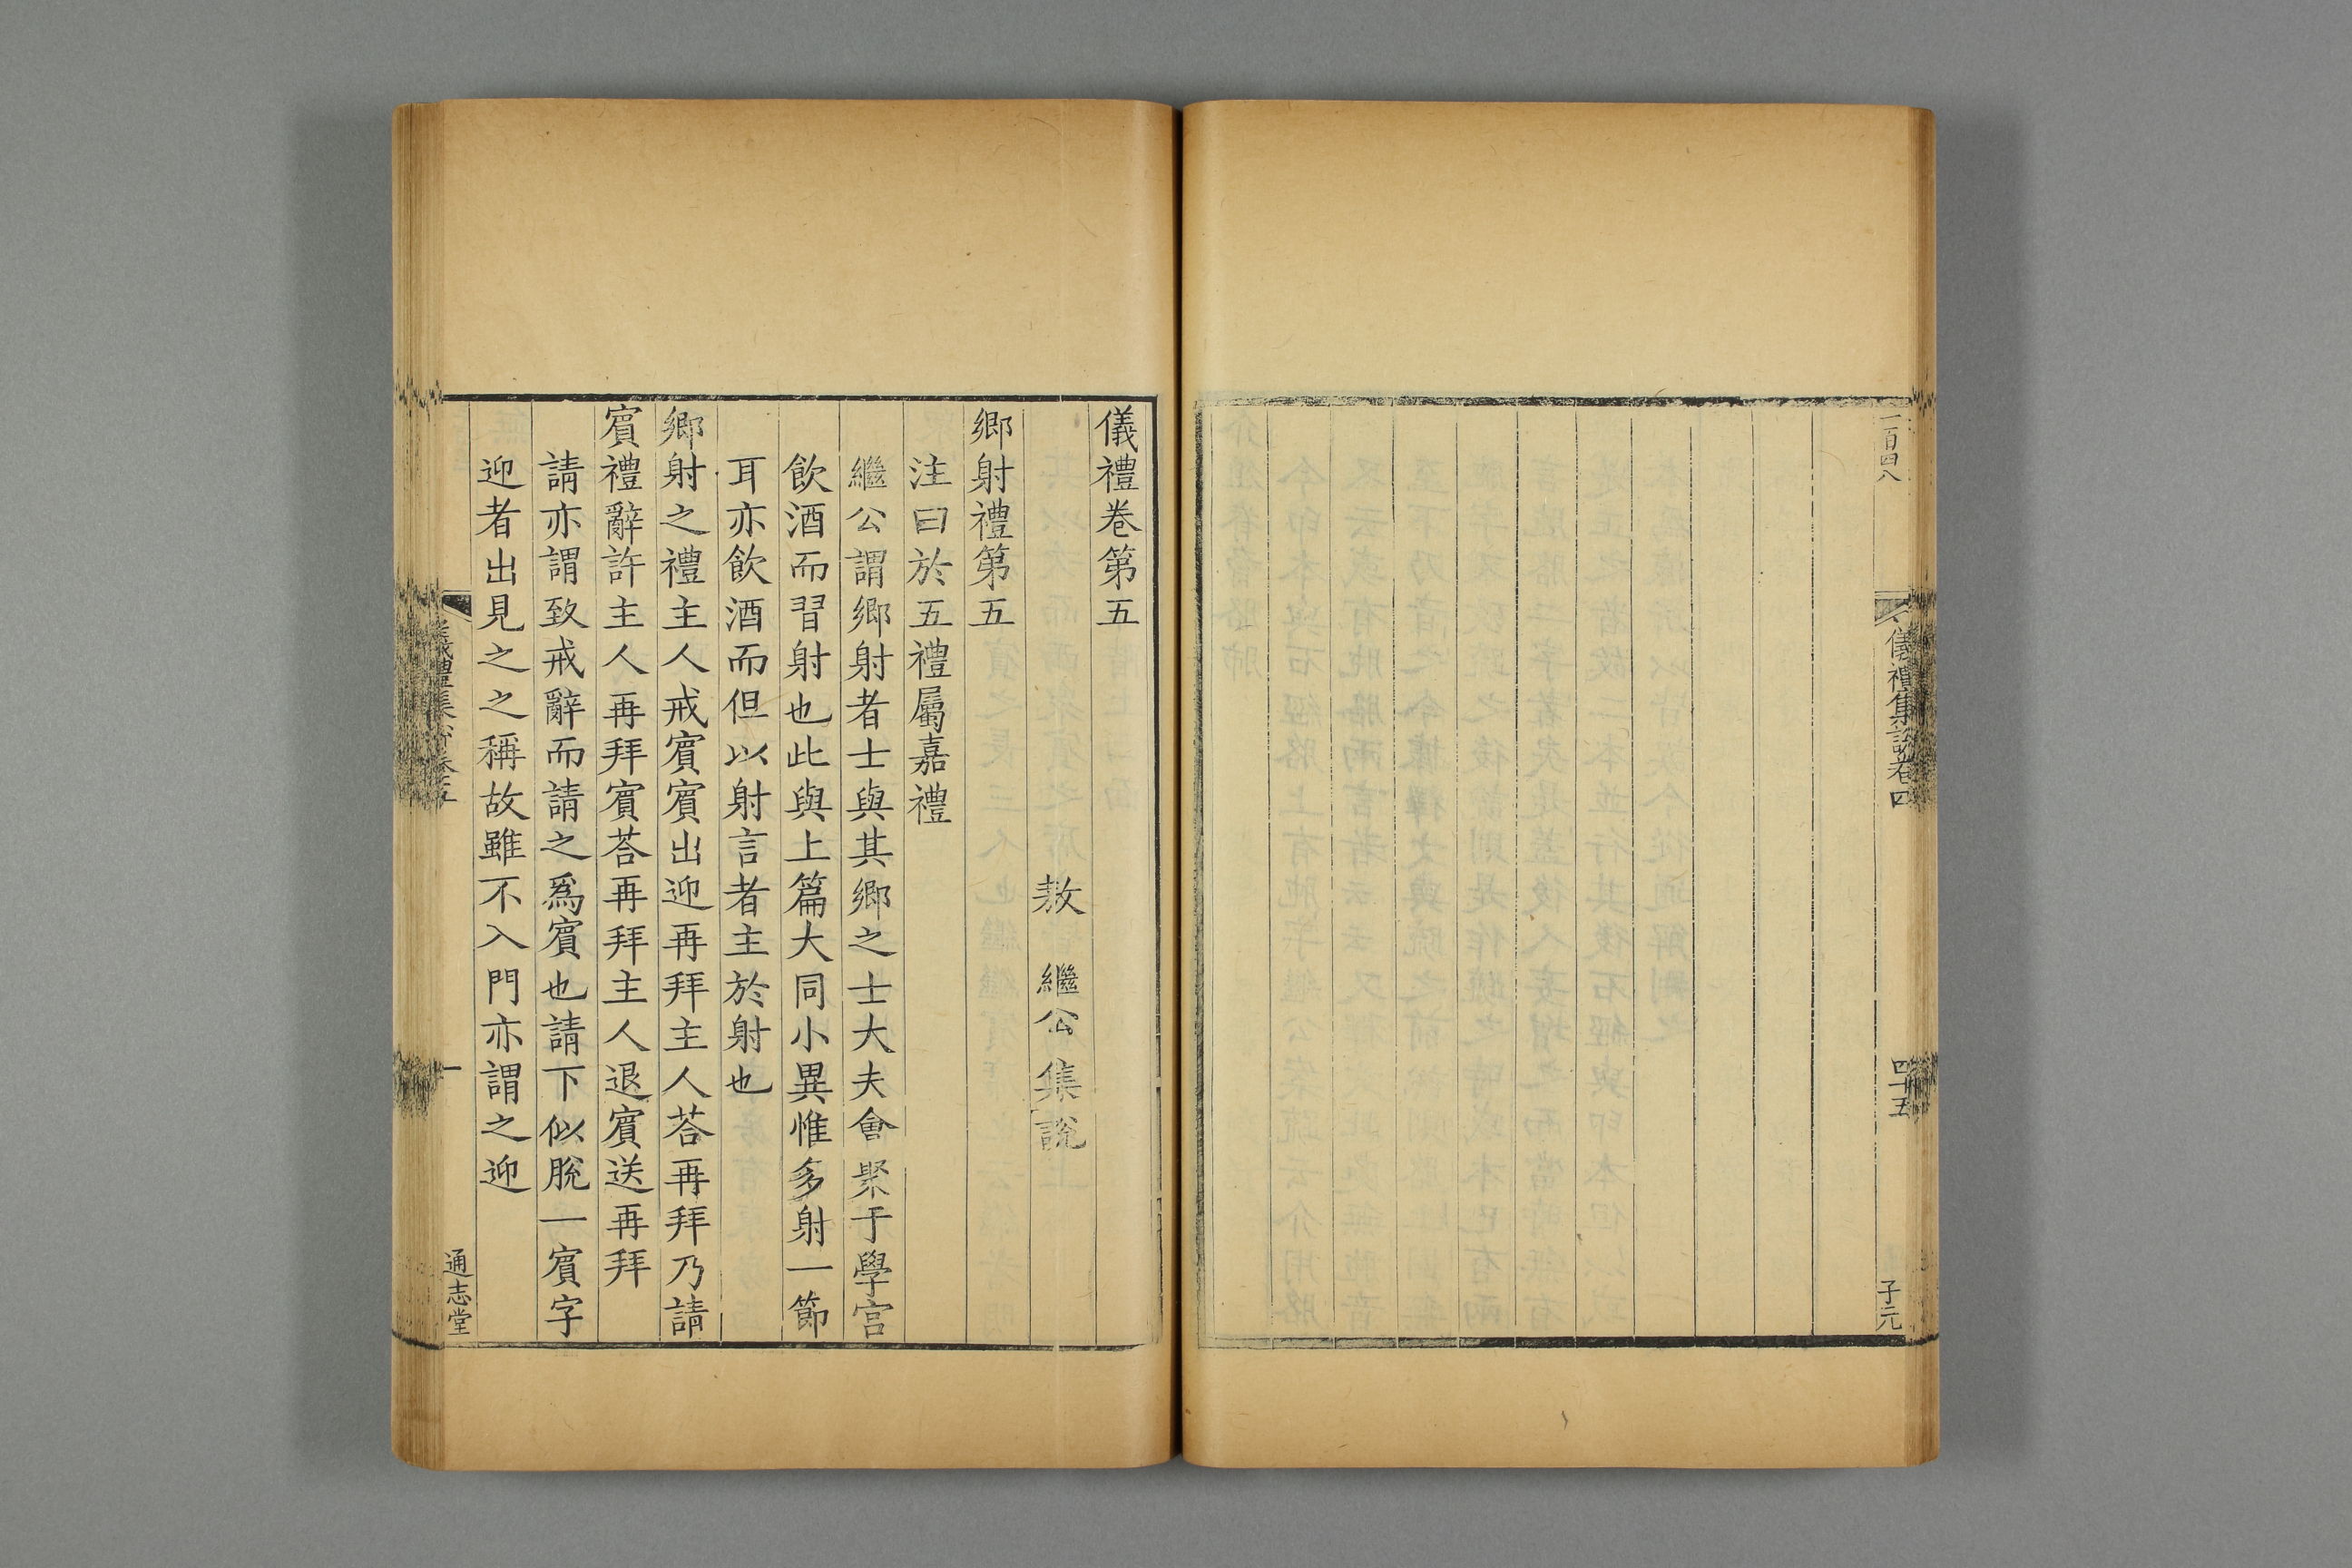 一百四八
儀禮集說卷四
四十五
子元
儀禮卷第五
敖繼公集說
鄉射禮第五
注曰於五禮屬嘉禮
繼公謂鄉射者士與其鄉之士大夫會聚于學宮
飲酒而習射也此與上篇大同小異惟多射一節
耳亦飲酒而但以射言者主於射也
鄉射之禮主人戒賓賓出迎再拜主人荅再拜乃請
賓禮辭許主人再拜賓荅再拜主人退賓送再拜
請亦謂致戒辭而請之爲賓也請下似脫一賓字
迎者出見之之稱故雖不入門亦謂之迎
一
通志堂